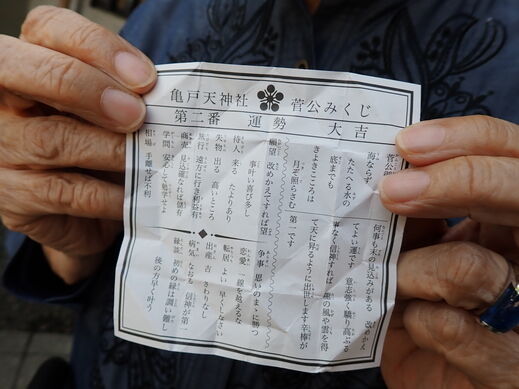 亀戸天神社 菅公みくじ
第二番 運勢 大吉
菅公
海ならず
たたへる水の
底までも
きよきこころは
月ぞ照らさむ
何事も末の見込みがある 改めかえ
てよい運です 意志強く驕り高ぶる
事なく信神すれば 龍の風や雲を得
て天に昇るように出世します 辛棒が
第一です
願望 改めかえてすれば望
事叶い喜び多し
待人 来る たよりあり
失物 出る 高いところ
旅行 遠方に行き利益有
商売 見込確なれば儲有
学問 安心して勉学せよ
相場 手離せば不利
争事 思いのまゝに勝つ
恋愛 一線を越えるな
転居 よい 早くしなさい
出産 吉 さわりなし
病気 なおる 信神が第一
縁談 初めの縁は調い難し
後の方早く叶う